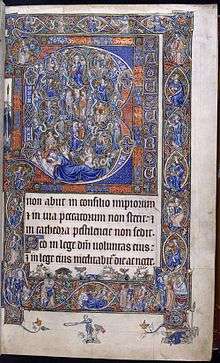 non abiit in consilio impiorum
⁊ in uia peccatorum non stetit: ⁊
in cathedra pestilencie non sedit
Sed in lege dñi uoluntas eius:
⁊ in lege eius meditabit' die ac nocte